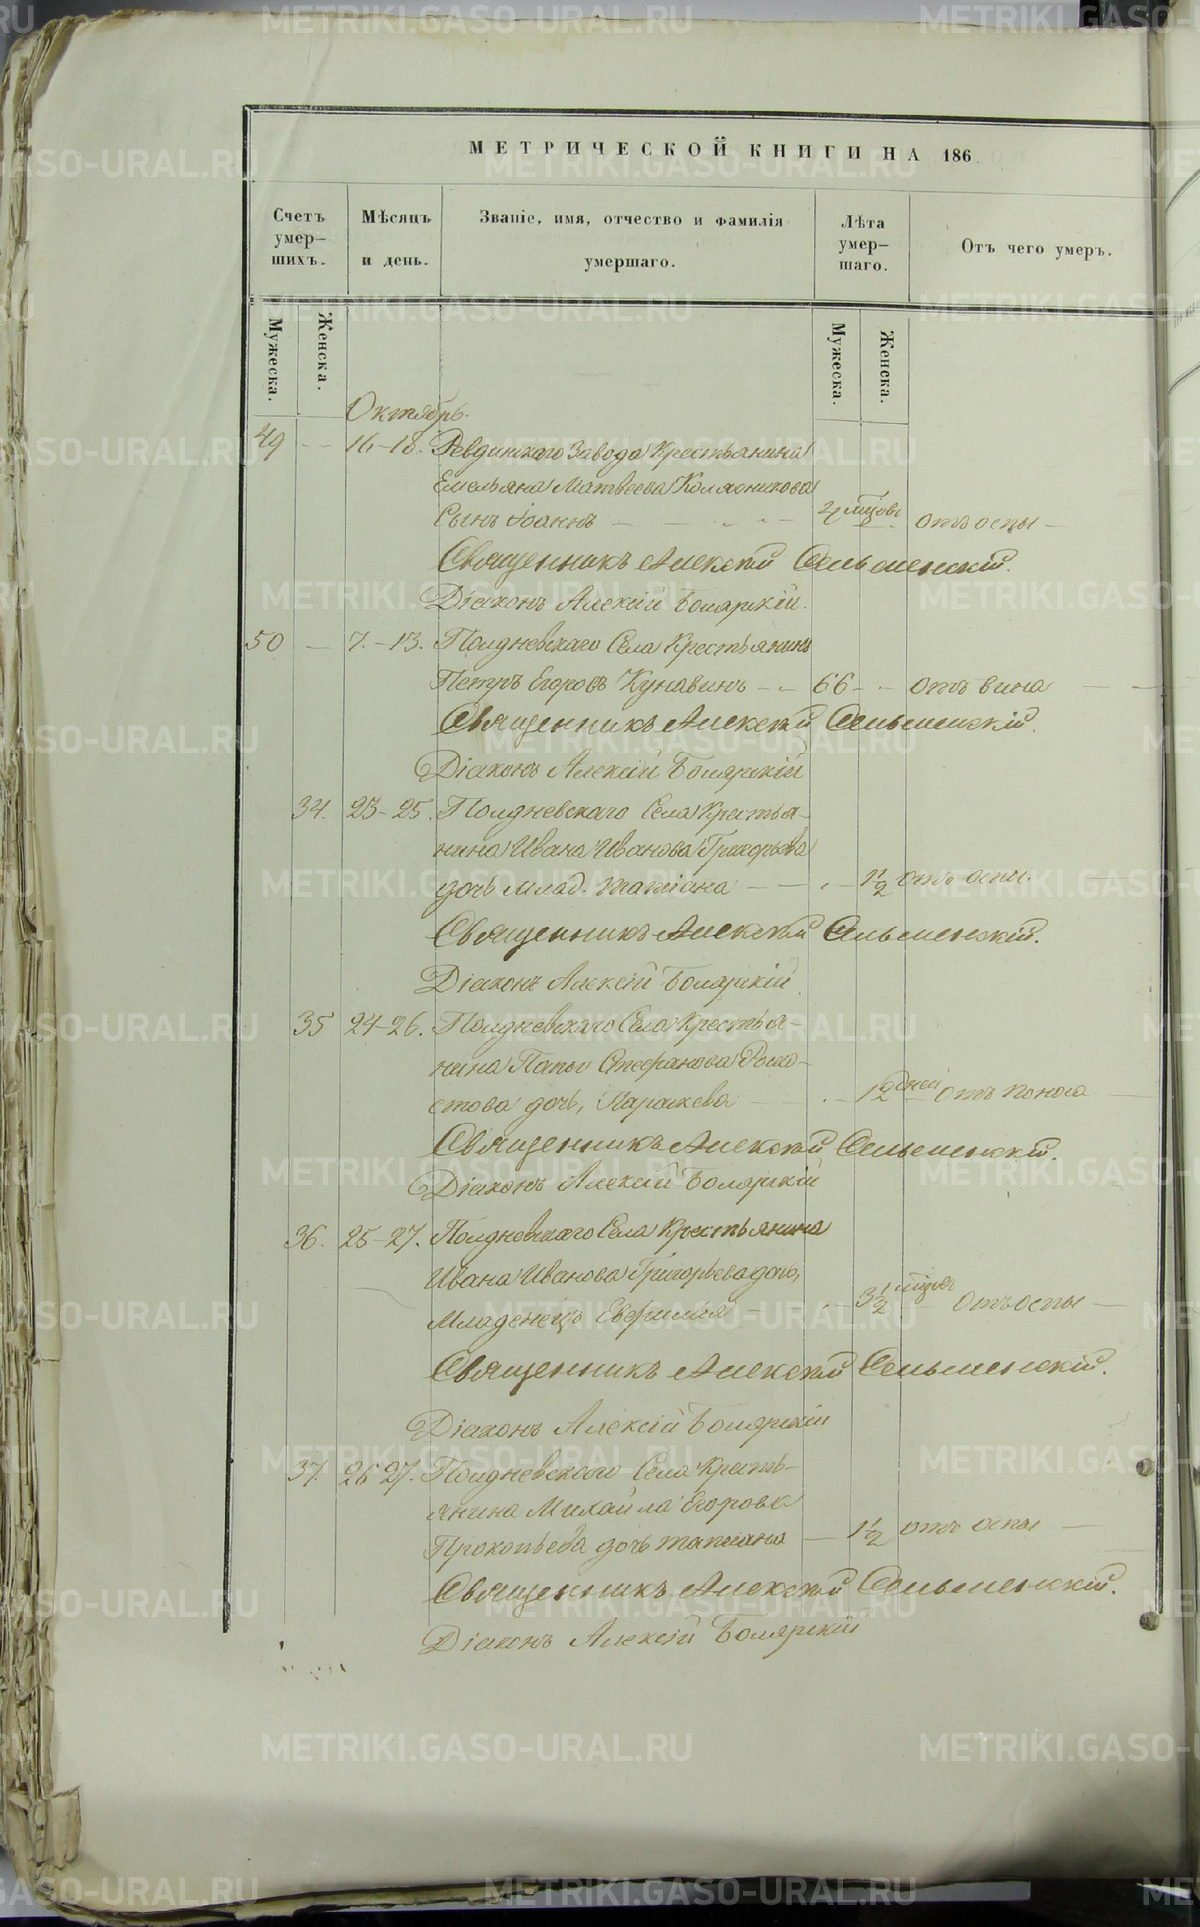 МЕТРИЧЕСКОЙ КНИГИ НА 186
Счетъ умер-шихъ.
Мѣсяцъ и день.
Званіе, имя, отчество и фамилія умершаго.
Лѣта умер-шаго.
Отъ чего умеръ.
Мужеска. Женска. Мужеска. Женска.
Октябрь.
49 — 16-18. Ревдинскаго Завода Крестьянина
Емельяна Матвеева Колясникова
Сынъ Іоаннъ — 4 мѣсяц. отъ оспы —
Священникъ Алексѣй
Діаконъ Алексій Боярскій.
50 — 7.-13. Полдневскаго Села Крестьянинъ
Петръ Егоровъ Кунавинъ - - 66 - - отъ вина —
Священникъ Алексѣй
Діаконъ Алексій Боярскій
34. 23-25. Полдневскаго Села Крестья-
нина Ивана Иванова Григорьева
дочь млад. Татіана — — 1½ отъ оспы. —
Священникъ Алексѣй
Діаконъ Алексій Боярскій.
35 24-26. Полдневскаго Села Крестья-
нина Стефанова
дочь, Параскева — 12 дней отъ поноса —
Священникъ Алексѣй
Діаконъ Алексій Боярскій
36. 25-27. Полдневскаго Села Крестьянина
Ивана Иванова Григорьева дочь,
Младенецъ Евфимія — 3½ отъ оспы —
Священникъ Алексѣй
Діаконъ Алексій Боярскій
37. 26 27. Полдневскаго Села Кресть-
янина Михайла Егорова
Прокопьева дочь Татіана — 1½ отъ оспы —
Священникъ Алексѣй
Діаконъ Алексій Боярскій
METRIKI.GASO-URAL.RU